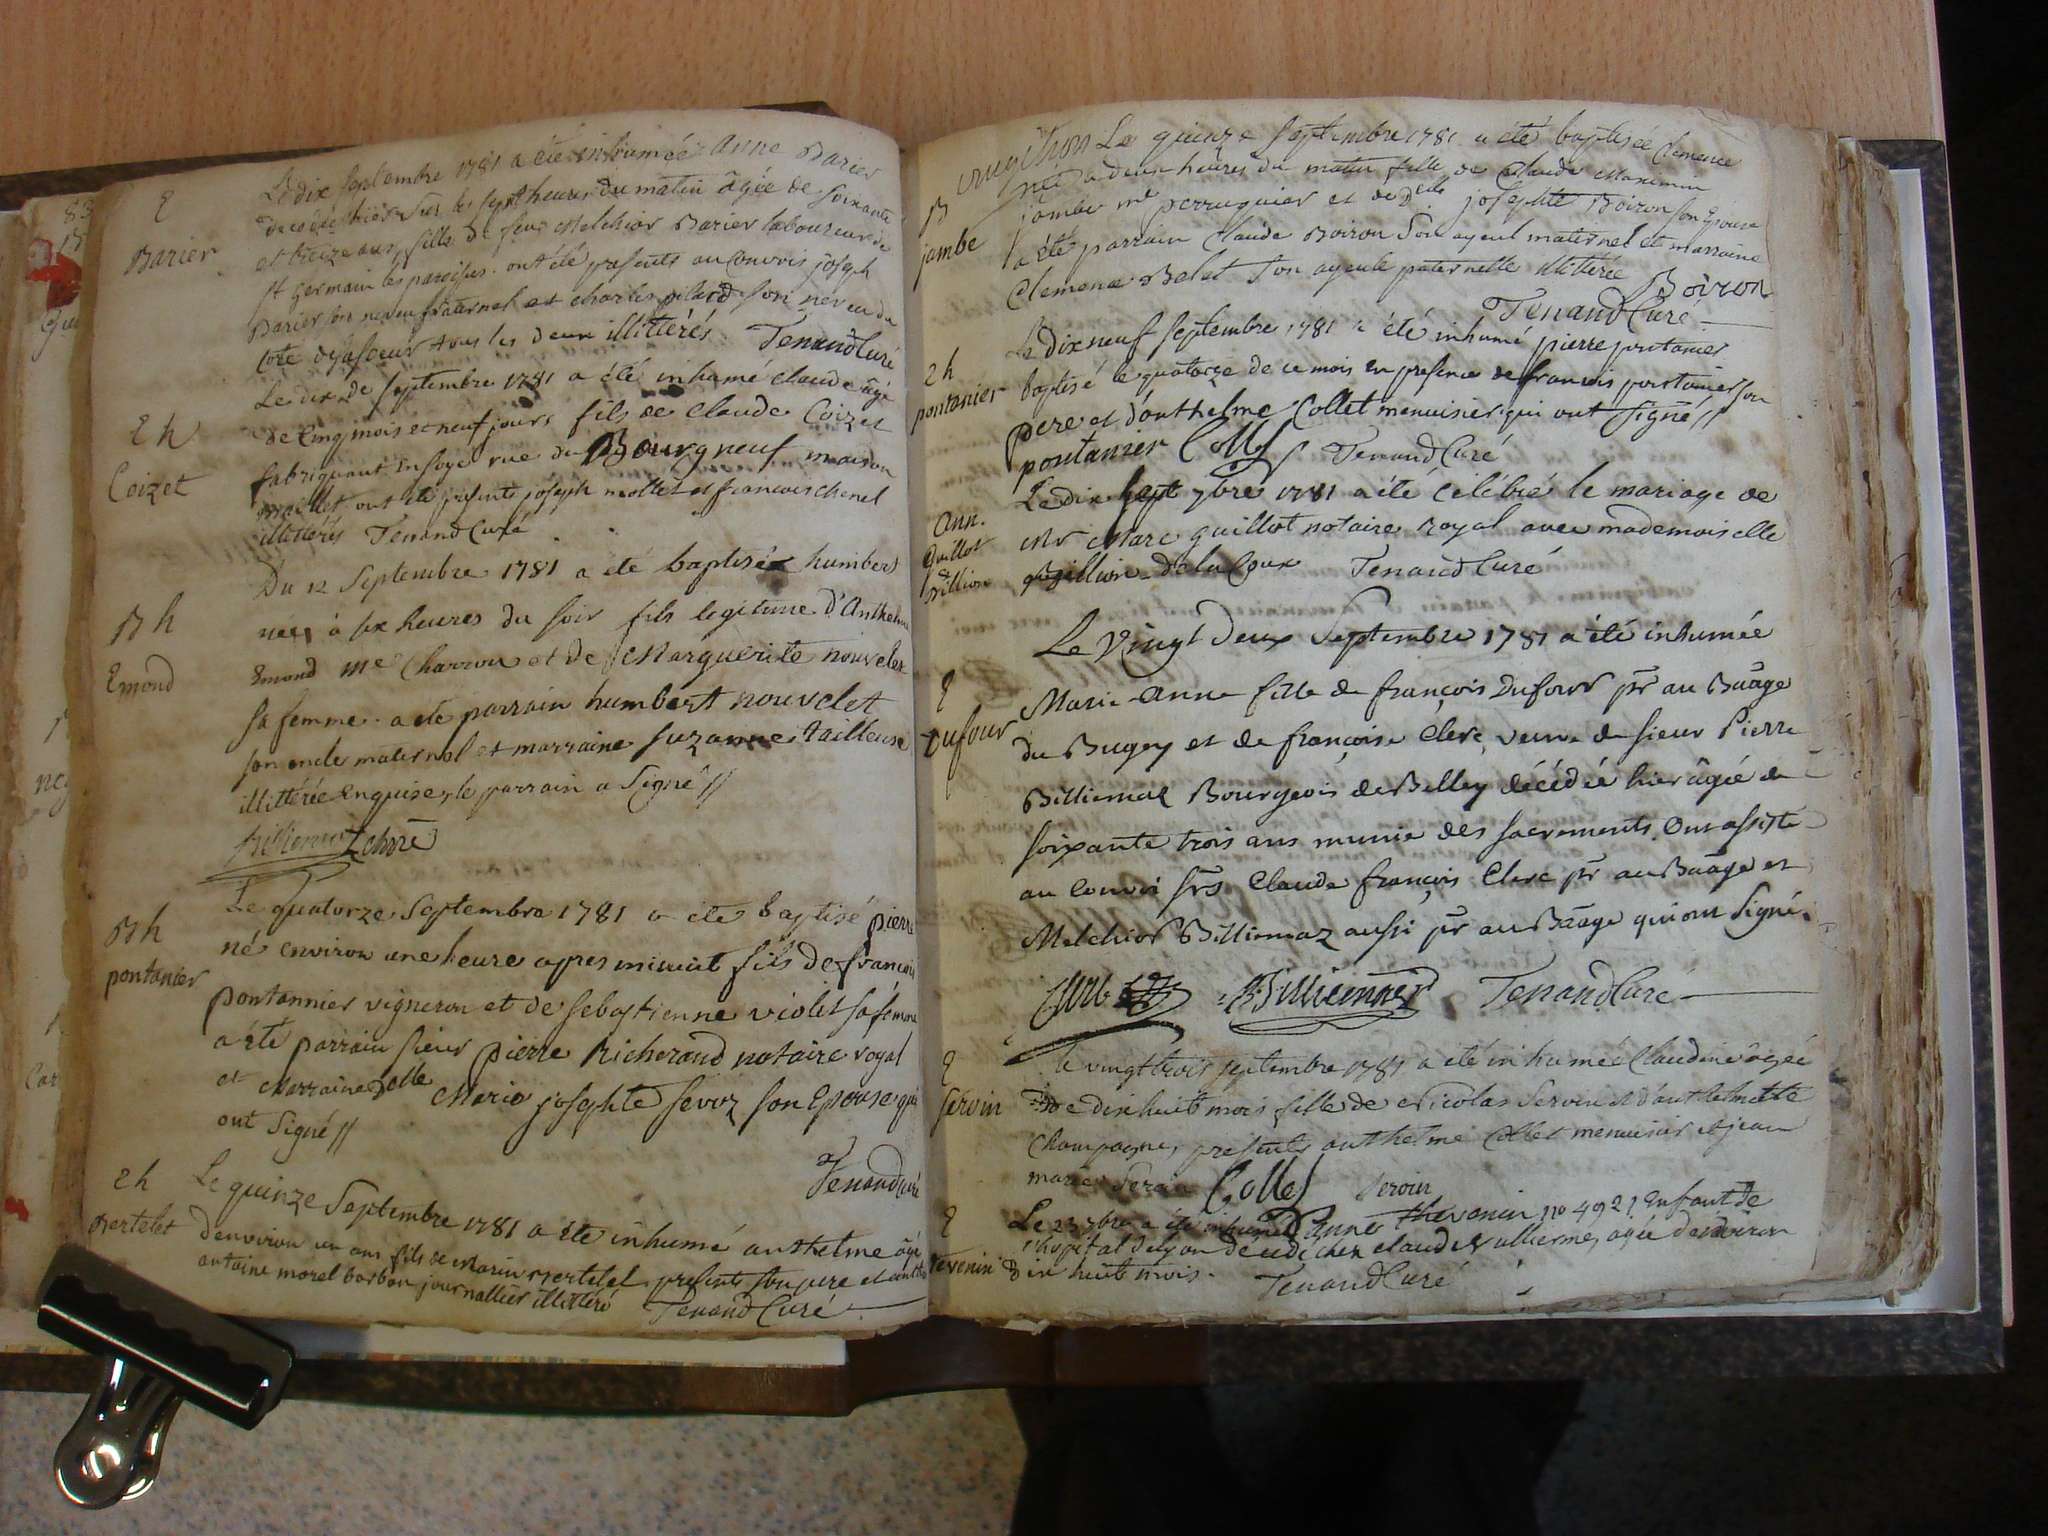 E
Barier
Le dix septembre 1781 a été inhumée Anne Barier
décédée hier sur les sept heures du matin âgée de soixante
et treize ans, fille de feu Melchior Barier laboureur de
St Germain les paroisses. ont été présents au convois joseph
Barier son neveu paternel et charles pilard son neveu du
coté de sa soeur tous les deux illitérés. Tenand Curé
E h
Coizet
Le dix de septembre 1781 a été inhumé claude âgé
de cinq mois et neuf jours fils de Claude Coizet
fabriquant en soye rue du Bourgneuf maison
maillet ont été présents joseph mollet et francois chenel
illitérés Tenand Curé
B h
Emond
Du 12 Septembre 1781 a été baptisé humbert
né à six heures du soir fils legitime d'Anthelme
Emond me Charron et de Marguerite nouvelet
sa femme. a été parrain humbert nouvelet
son oncle maternel et marraine suzanne tailleuse
illitérée Enquise, le parrain a Signé //
Billiemaz
B h
pontanier
Le quatorze Septembre 1781 a été baptisé pierre
né environ une heure apres minuit fils de françois
pontannier vigneron et de sebastienne violet sa femme
a été parrain sieur pierre Richerand notaire royal
et Marraine Delle Marie josephte sevoz son Epouse qui
ont Signé //
Tenand Curé
E h
Bertelet
Le quinze Septembre 1781 a été inhumé anthelme âgé
d'environ un an fils de Marin Bertelet presents son pere et
antoine morel barbon journallier illitéré Tenand Curé
B
jambe
Le quinze Septembre 1781 a été baptisée Clemence
née a deux heures du matin fille de Claude Maximin
jambe me perruquier et de Delle josephte Boiron son Epouse
a été parrain Claude Boiron Son ayeul maternel et marraine
Clemence Belet Son ayeule paternelle illitérée Boiron
Tenand Curé
E h
pontanier
Le dix neuf septembre 1781 a été inhumé pierre pontanier
baptisé le quatorze de ce mois en presence de francois pontanier son
pere et d'anthelme Collet menuisier qui ont signé //
pontanier Collet Tenand Curé
Ann.
Guillot
&
Le dix sept 7bre 1781 a été celebré le mariage de
Mr Marc guillot notaire Royal avec mademoiselle
De la Coux Tenand Curé
E
Dufour
Le Vingt Deux Septembre 1781 a été inhumée
Marie-Anne fille de françois Dufour pr au Baage
du Bugey et de françoise Clerc, veuve de sieur Pierre
Billiemaz Bourgeois de Belley décédée hier âgée de
soixante trois ans munie des sacrements. Ont assisté
au convoi srs Claude françois Clerc pr au Baage et
Melchior Billiemaz aussi pr au Baage qui ont Signé.
Clerc Billiemaz Tenand Curé
E
Servin
le vingt trois septembre 1781 a été inhumée Claudine âgée
de dix huit mois fille de Nicolas Servin et d'anthelmette
Champagne, presents anthelme Collet menuisier et jean
marie Servin Collet servin
E
Tevenin
Le 23 7bre a été inhumée anne thevenin no 4921 Enfant de
l'hopital de lyon décédé chez claude vulliermes, agée d'environ
dix huit mois. Tenand Curé